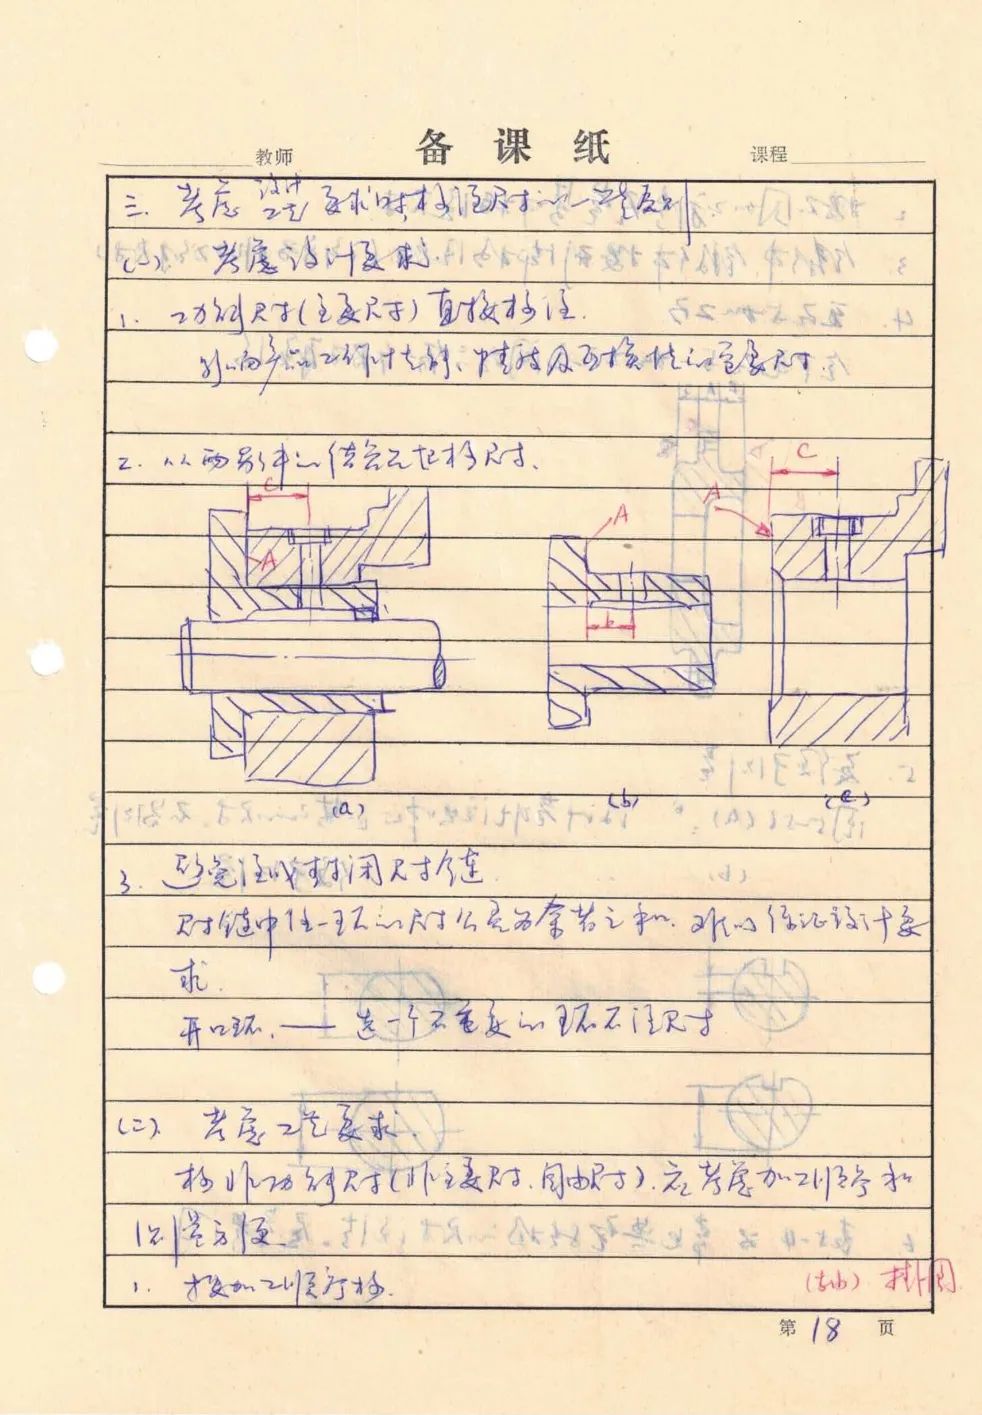 备课纸
教师 课程
三、考虑设计工艺要求时,标注尺寸的一些原则
(一). 考虑设计要求.
1. 功能尺寸(主要尺寸)直接标注.
影响产品工作性能、精度及互换性的重要尺寸.
2. 从两零件的结合面起标尺寸.
C
A
A
b
A
C
(a) (b) (c)
3. 避免注成封闭尺寸链.
尺寸链中任一环的尺寸公差为余者之和. 难以保证设计要
求.
开口环. —— 选一个不重要的环不注尺寸
(二). 考虑工艺要求.
标非功能尺寸(非主要尺寸、自由尺寸). 应考虑加工顺序和
测量方便.
1. 按加工顺序标.
挂图
第 18 页